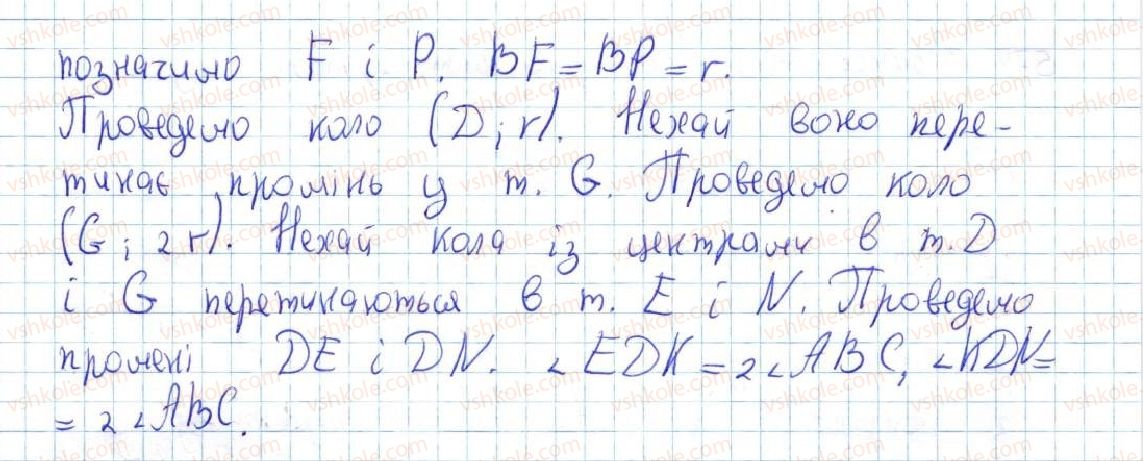 позначимо F і P. BF = BP = r.
Проведемо коло (D; r). Нехай воно пере-
тинає промінь у т. G. Проведемо коло
(G; 2r). Нехай кола із центрами в т. D
і G перетинаються в т. E і N. Проведемо
промені DE і DN. ∠EDK = 2∠ABC, ∠KDN =
= 2∠ABC.